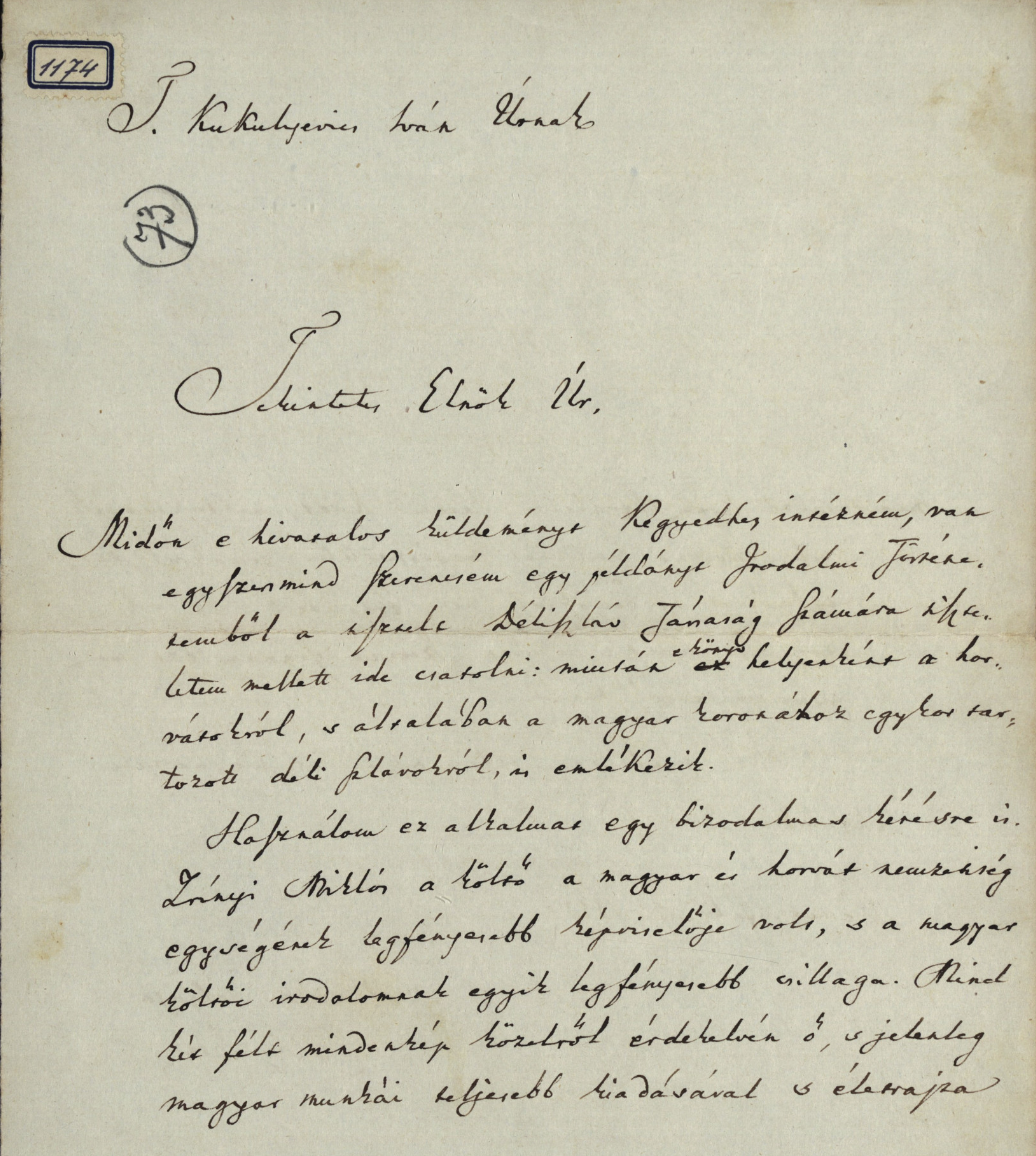 1174
T. Kukulyevics Iván Úrnak
73
Tekintetes Elnök Úr,
Midőn e hivatalos küldeményt Kegyedhez intézném, van
egyszersmind szerencsém egy példányt Irodalmi Történe-
temből a tisztelt Déliszláv Társaság számára tiszte-
letem mellett ide csatolni: miután e könyv helyenként a hor-
vátokról, s általában a magyar koronához egykor tar-
tozott déli szlávokról, is emlékezik.
Használom ez alkalmat egy bizodalmas kérésre is.
Zrínyi Miklós a költő a magyar és horvát nemzetiség
egységének legfényesebb képviselője volt, s a magyar
költői irodalomnak egyik legfényesebb csillaga. Mind
két félt mindenkép közelről érdekelvén ő, s jelenleg
magyar munkái teljesebb kiadásával s életrajza